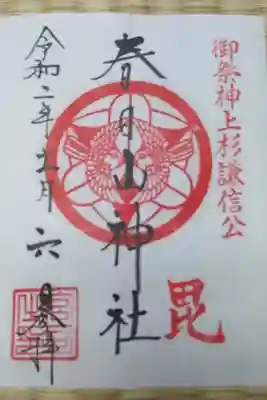 御祭神上杉謙信公
毘
春日山神社
令和二年十一月六日参拝